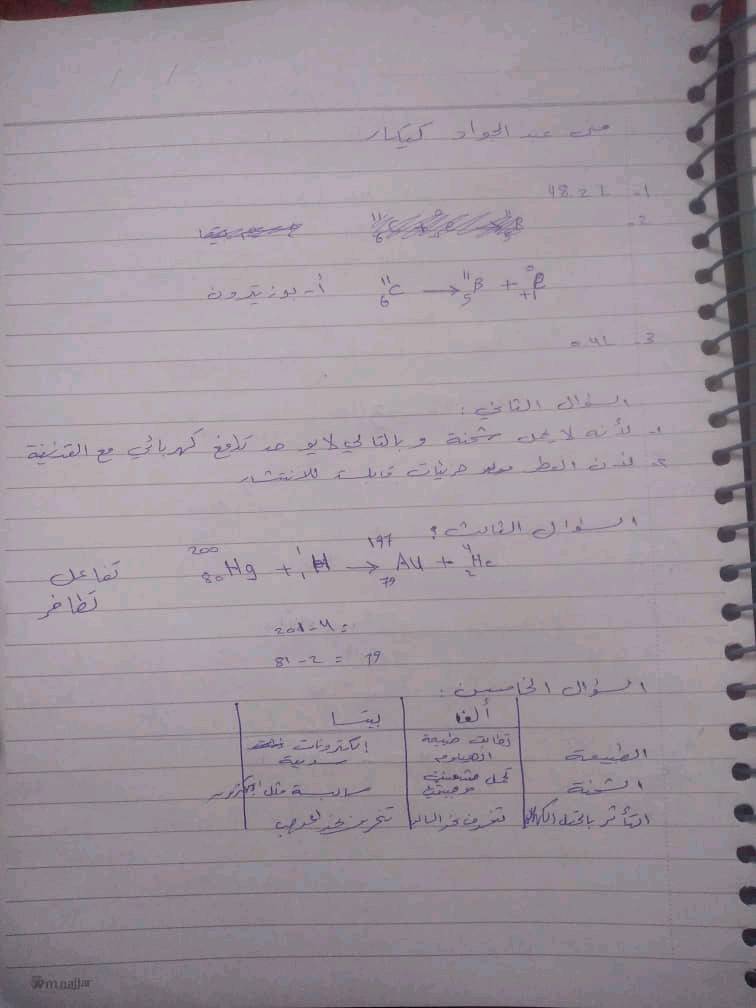 عبد الجواد كيكار
1- 48.2 L
2-
أ- بوزيترون ¹¹₆C → ¹¹₅B + ⁰₊₁β
3- 4L
السؤال الثاني:
1- لأنه لا يحمل شحنة وبالتالي لا يوجد تدافع كهربائي مع القذيفة
2- لأن العطر جزيئات قابلة للانتشار
السؤال الثالث:
²⁰⁰₈₀Hg + ¹₁H → ¹⁹⁷₇₉Au + ⁴₂He تفاعل
تطافر
201-4=
81-2 = 79
السؤال الخامس:
ألفا بيتا
الطبيعة تطابق طبيعة الهيليوم إلكترونات سريعة
الشحنة تحمل شحنتين موجبتين سالبة مثل
التأثر بالحقل تنحرف نحو السالب تنحرف نحو الموجب
m.najjar